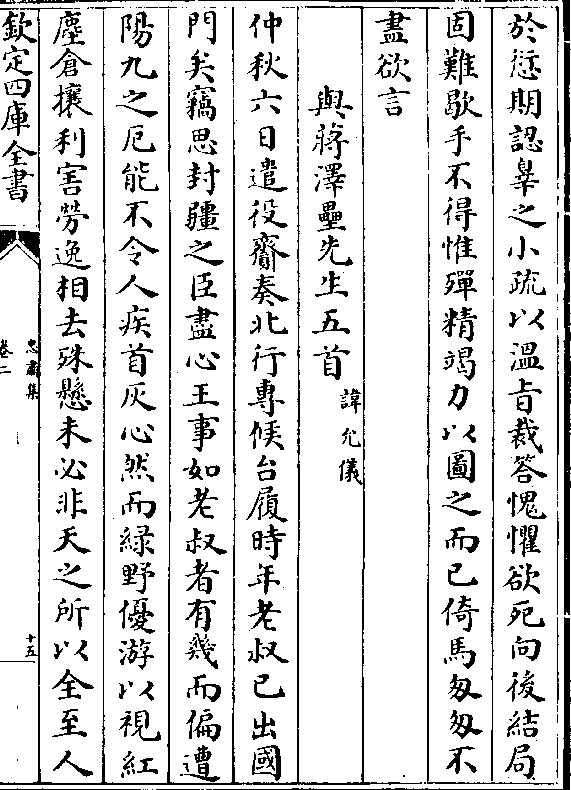 於愆期認辠之小疏以溫旨裁答愧懼欲死向後結局
固難歇手不得惟殫精竭力以圖之而已倚馬匆匆不
盡欲言
與蔣澤壘先生五首諱允儀
仲秋六日遣役齎奏北行專候台履時年老叔已出國
門矣竊思封疆之臣盡心王事如老叔者有幾而偏遭
陽九之厄能不令人疾首灰心然而綠野優游以視紅
塵倉攘利害勞逸相去殊懸未必非天之所以全至人
欽定四庫全書
忠肅集
卷二
十五